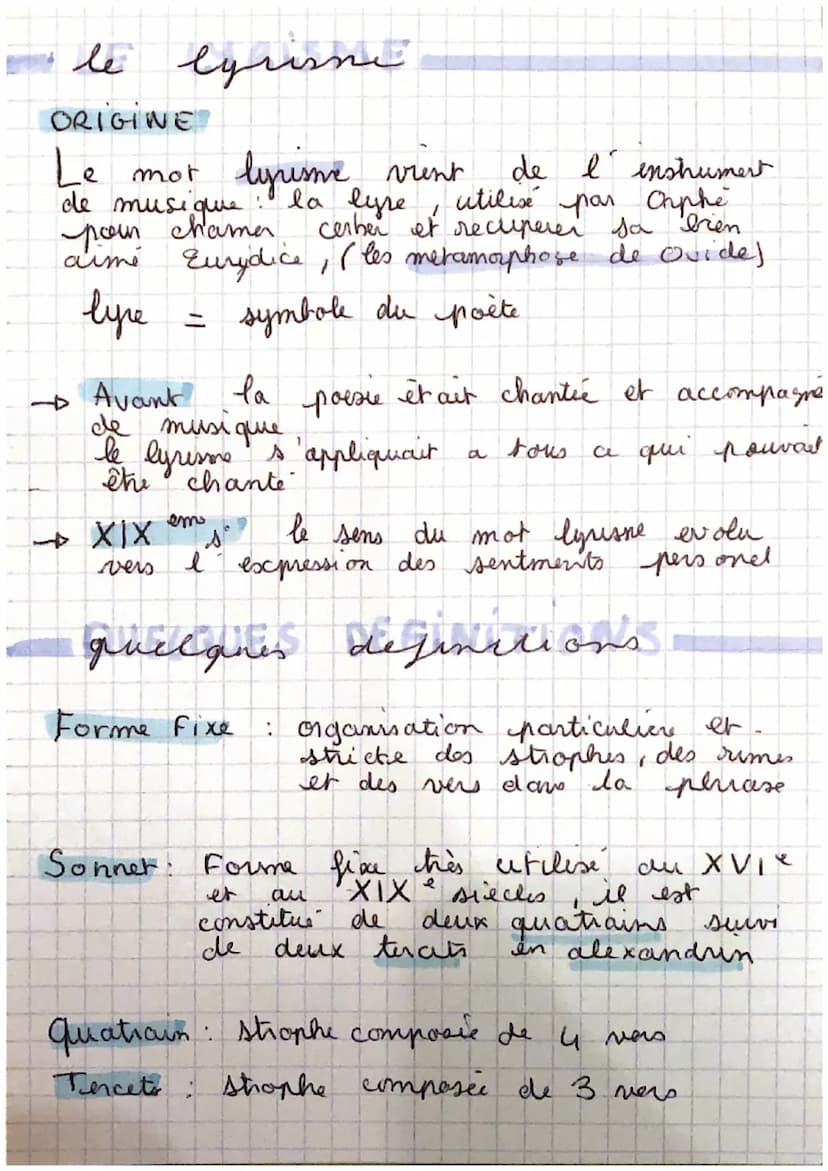 le lyrisme
ORIGINE
Le mot lyrisme vient de l'instrument
de musique : la lyre, utilisé par Orphé
pour chamer cerber et recuperer sa bien
aimé Eurydice, (les métamorphose de Ovide)
lyre = symbole du poète
→ Avant la poesie était chantée et accompagné
de musique
le lyrisme s'appliquait a tous ce qui pouvait
être chanté
→ XIX em s. le sens du mot lyrisme evolu
vers l'expression des sentiments personel
quelques definitions
Forme fixe : organisation particuliere et
stricte des strophes, des rimes
et des vers dans la phrase
Sonnet : Forme fixe très utilisé au XVIe
et au XIXe siècles, il est
constitué de deux quatrains suivi
de deux tercets en alexandrin
Quatrain : strophe composée de 4 vers
Tercets : strophe composée de 3 vers